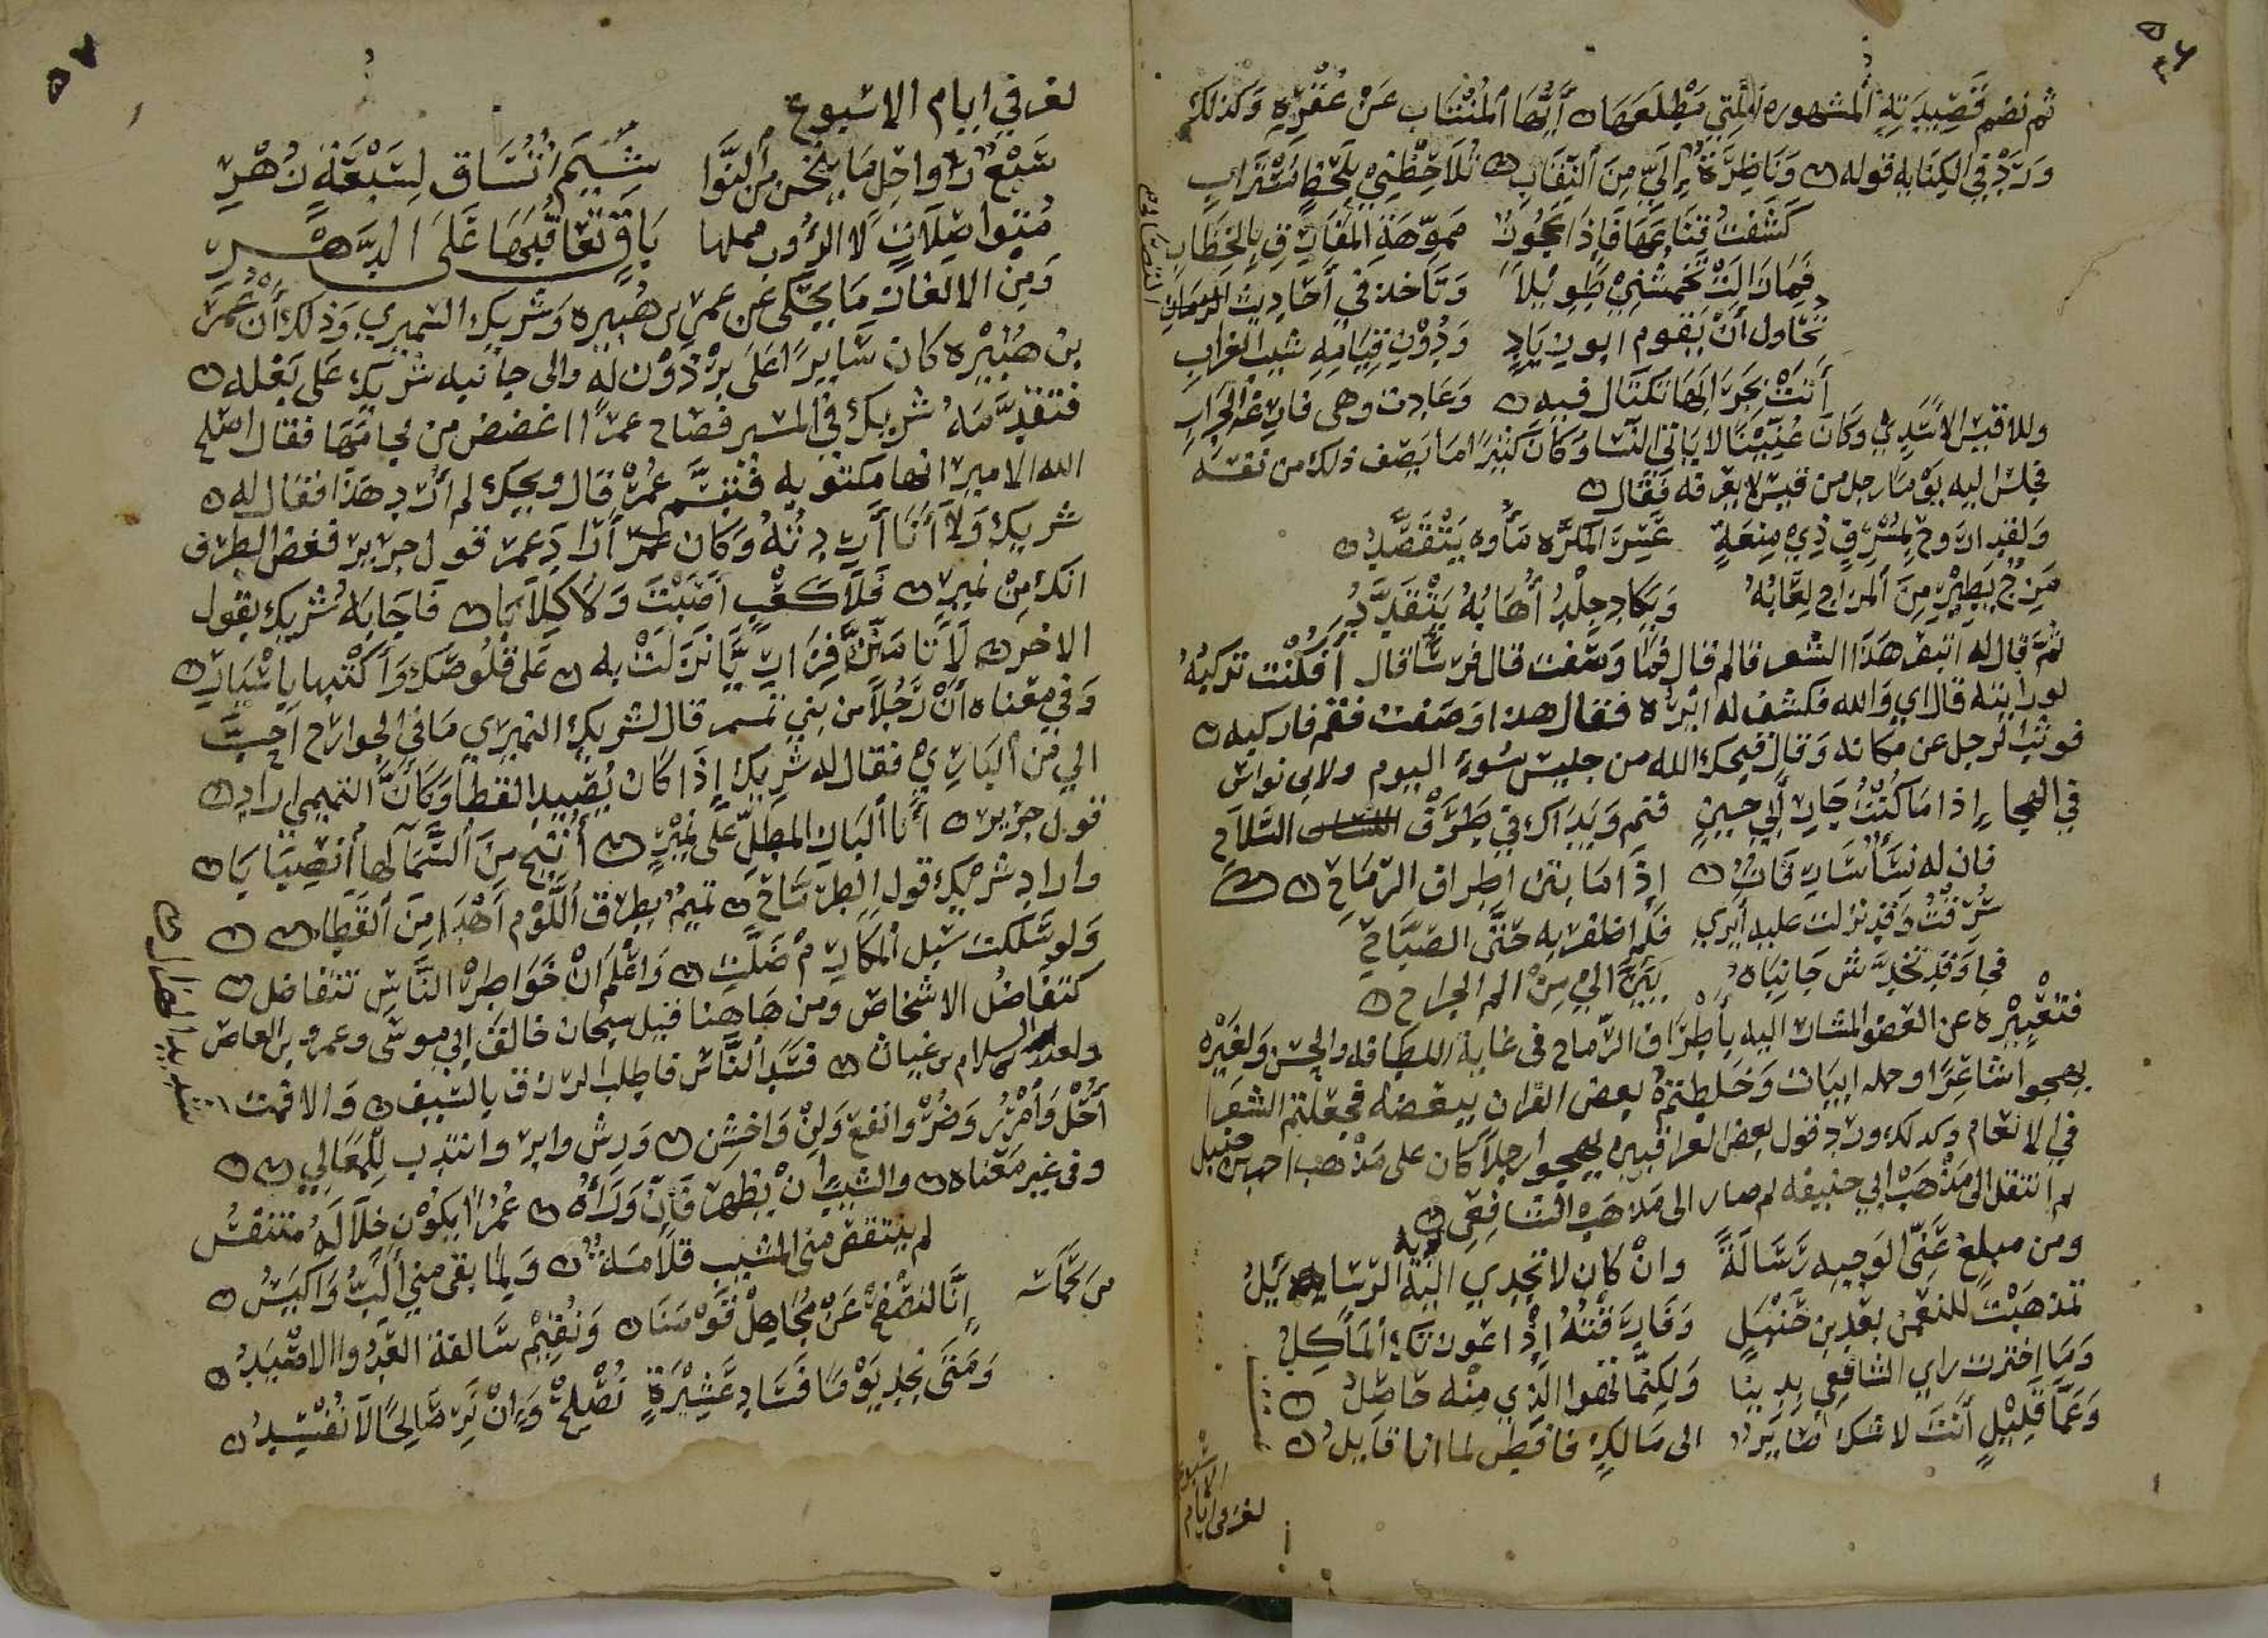 ثم نضم قصيدته المشهوره التي مطلعها ايها المنتاب عن عفره وكذلك
ورد في الكنايه قوله وناظرة الي من النقاب تلاحظني بلحظ مستراب
كشفت قناعها فاذا عجوز مموهة المفارق بالخضاب
فما زالت تجمشني طويلا وتاخذ في احاديث
تحاول أن يقوم ابو زياد ودون قيامه شيب الغراب
أتت بجرابها تكتال فيه وعادت وهى فارغة الجراب
وللاقيشر الأسدي وكان عنينا لا ياتي النسا وكان كثيرا ما يصف ذلك من نفسه
فجلس اليه يوما رجل من قيس لا يعرفه فقال
ولقد اروح بمشرف ذي منعة عسر المكره ماوه يتفصد
مرح يطير من المراح لعابه ويكاد جلد أهابه يتقدد
ثم قال له اتعرف هذا الشعر قال نعم قال فما وصفت قال فرسا قال أفكنت تركبه
لو رايته قال اي والله فكشف له ايره فقال هذا وصفت فقم فاركبه
فوثب الرجل عن مكانه وقال قبحك الله من جليس سوء اليوم ولابي نواس
في الهجا إذا ما كنت جار لابي حسين فنم ويداك في طرف السلاح
فان له نسأ سارقات إذا ما بتن اطراف الرماح
سرقن وقد نزلت عليه أيري فلم اظفر به حتى الصباح
فجا وقد تخدش جانباه يئن الي من الم الجراح
فتعبيره عن العضو المشار اليه بأطراف الرماح في غاية اللطافه والحسن ولغيره
يهجوا شاعرا ابيات وخلطتم بعض القران ببعضه فجعلتم الشعرا
في الانعام وكذلك ورد قول بعض العراقيين يهجوا رجلا كان على مذهب احمد بن حنبل
ثم انتقل الى مذهب ابي حنيفه ثم صار الى مذهب الشافعي
ومن مبلغ عني الوجيه رسالة وان كان لا تجدي اليه الرسايل
تمذهبت للنعمن بعد بن حنبل وفارقته إذ اعوزتك المأكل
وما اخترت راي الشافعي دينا ولكنما تهوا الذي منه حاصل
وعما قليل أنت لا شك صاير الى مالك فافطن لما انا قايل
لغز في ايام
الاسبوع
لغز في ايام الاسبوع
سبع رواحل ما ينخن من النوا شيم تساق لسبعة زهر
متواصلات لا الدؤب يملها باق تعاقبها على الدهر
ومن الالغاز ما يحكى عن عمر بن هبيره وشريك النميري وذلك أن عمر
بن هبيره كان سايرا على برذون له والى جانبه شريك على بغله
فتقدمه شريك في المسير فصاح عمر اغضض من لجامها فقال اصلح
الله الامير انها مكتوبه فتبسم عمر قال ويحك لم أرد هذا فقال له
شريك ولا أنا أردته وكان عمر أراد قول جرير فغض الطرف
انك من نمير فلا كعبا بلغت ولا كلابا فاجابه شريك بقول
الاخر لا تامنن فزاريا نزلت به على قلوصك واكتبها باسيار
وفي معناه أن رجلا من بني تميم قال لشريك النميري ما في الجوارح احب
الي من البازي فقال له شريك إذا كان يصيد القطا وكان التميمي اراد
قول جرير أنا الباز المطل على نمير أتيح من السما لها أنصبابا
واراد شريك قول الطرماح تميم بطرق اللوم أهدا من القطا
ولو سلكت سبل المكارم ضلت واعلم أن خواطر الناس تتفاضل
كتفاضل الاشخاص ومن هاهنا قيل سبحان خالق ابي موسى وعمرو بن العاص
فسد الناس فاطلب الرزق بالسيف والا فمت
أحل وأمرر وضر وانفع ولن واخشن ورش وابر وانتدب للمعالي
وفى غير معناه والشيب ان يظهر فان وراه عمرا يكون خلاله متنفس
لم ينتقص مني المشيب قلامة ولما بقى مني ألب واكيس
إنا لنصفح عن مجاهل قومنا ونقيم سالفة العدو الاصيد
ومتى نجد يوما فساد عشيرة نصلح وإن نر صالحا لا نفسد